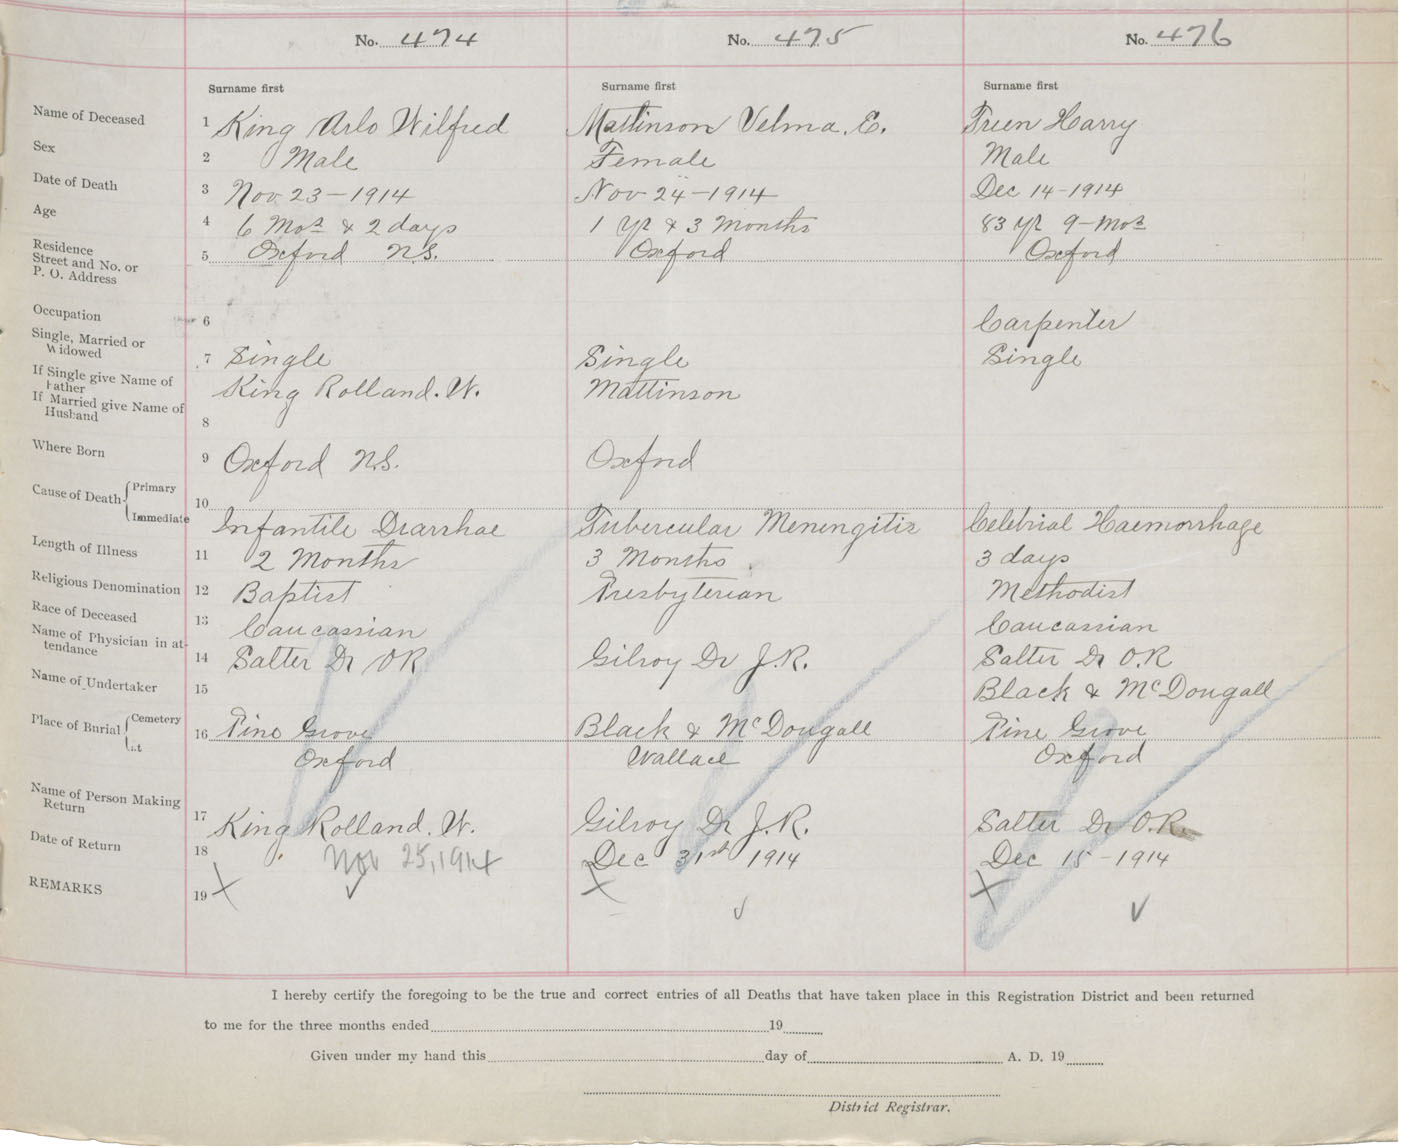 No. 474 No. 475 No. 476
Surname first Surname first Surname first
Name of Deceased 1 King Arlo Wilfred Mattinson Velma. E. Treen Harry
Sex 2 Male Female Male
Date of Death 3 Nov 23-1914 Nov 24-1914 Dec 14-1914
Age 4 6 Mos & 2 days 1 yr & 3 Months 83 yr 9-mos
Residence
Street and No. or
P. O. Address 5 Oxford N.S. Oxford Oxford
Occupation 6 Carpenter
Single, Married or
Widowed 7 Single Single Single
If Single give Name of
Father King Rolland. W. Mattinson
If Married give Name of
Husband 8
Where Born 9 Oxford N.S. Oxford
Cause of Death Primary 10
Immediate Infantile Diarrhae Tubercular Meningitis Celebrial Haemorrhage
Length of Illness 11 2 Months 3 Months. 3 days
Religious Denomination 12 Baptist Presbyterian Methodist
Race of Deceased 13 Caucassian Caucassian
Name of Physician in at-
tendance 14 Salter Dr OR Gilroy Dr J.R. Salter Dr O.R
Name of Undertaker 15 Black & McDougall
Place of Burial Cemetery 16 Pine Grove Black & McDougall Pine Grove
Oxford Wallace Oxford
Name of Person Making
Return 17 King Rolland. W. Gilroy Dr J.R. Salter Dr O.R.
Date of Return 18 Nov 25, 1914 Dec 31st 1914 Dec 15-1914
REMARKS 19 X ✓ X ✓ X ✓
I hereby certify the foregoing to be the true and correct entries of all Deaths that have taken place in this Registration District and been returned
to me for the three months ended 19
Given under my hand this day of A. D. 19
District Registrar.